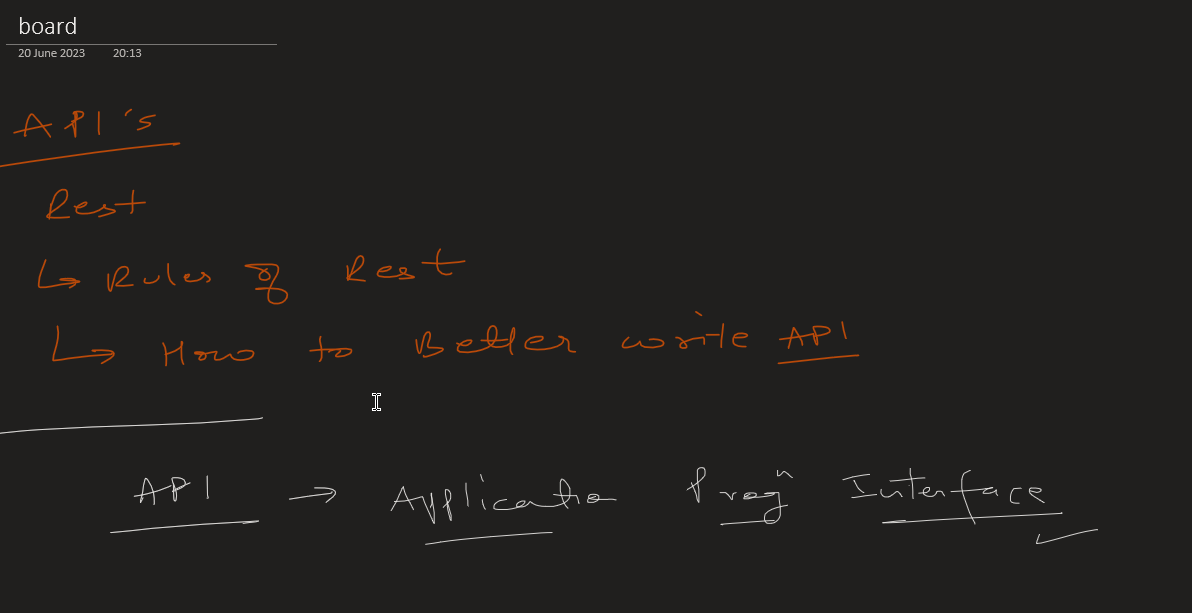 board
20 June 2023 20:13
API's
Rest
↳ Rules of Rest
↳ How to Better write API
API → Application Progn Interface